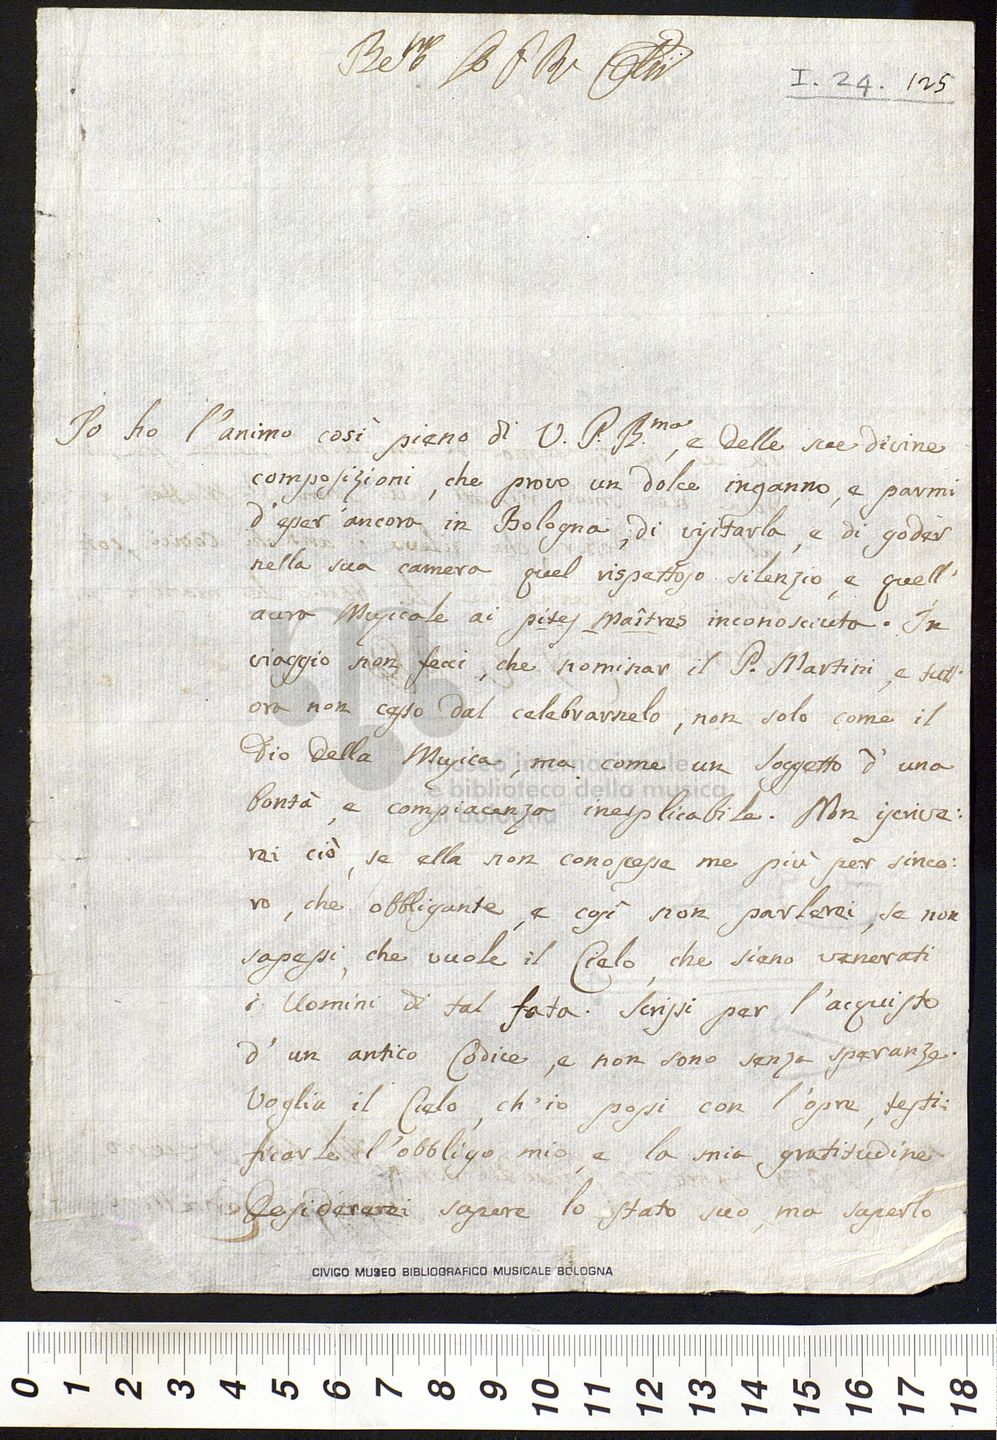 I. 24. 125
Io ho l'animo così pieno di V. P. R.ma, e delle sue divine
composizioni, che provo un dolce inganno, e parmi
d'esser ancora in Bologna, di visitarla, e di goder
nella sua camera quel rispettoso silenzio, e quell'
aura Musicale ai maîtres inconosciuta. In
viaggio non feci, che nominar il P. Martini, e tutt'
ora non cesso dal celebrarnelo, non solo come il
Dio della Musica, ma come un soggetto d'una
bontà, e compiacenza inesplicabile. Non iscrive:
rei ciò, se ella non conoscesse me più per since:
ro, che obbligante, e così non parlerei, se non
sapessi, che vuole il Cielo, che siano venerati
i Uomini di tal fata. Scrissi per l'acquisto
d'un antico Codice, e non sono senza speranze.
Voglia il Cielo, ch'io possi con l'opre, testi:
ficarle l'obbligo mio, e la mia gratitudine
Desidererei sapere lo stato suo, ma saperlo
museo internazionale
e biblioteca della musica
di bologna
CIVICO MUSEO BIBLIOGRAFICO MUSICALE BOLOGNA
0 1 2 3 4 5 6 7 8 9 10 11 12 13 14 15 16 17 18